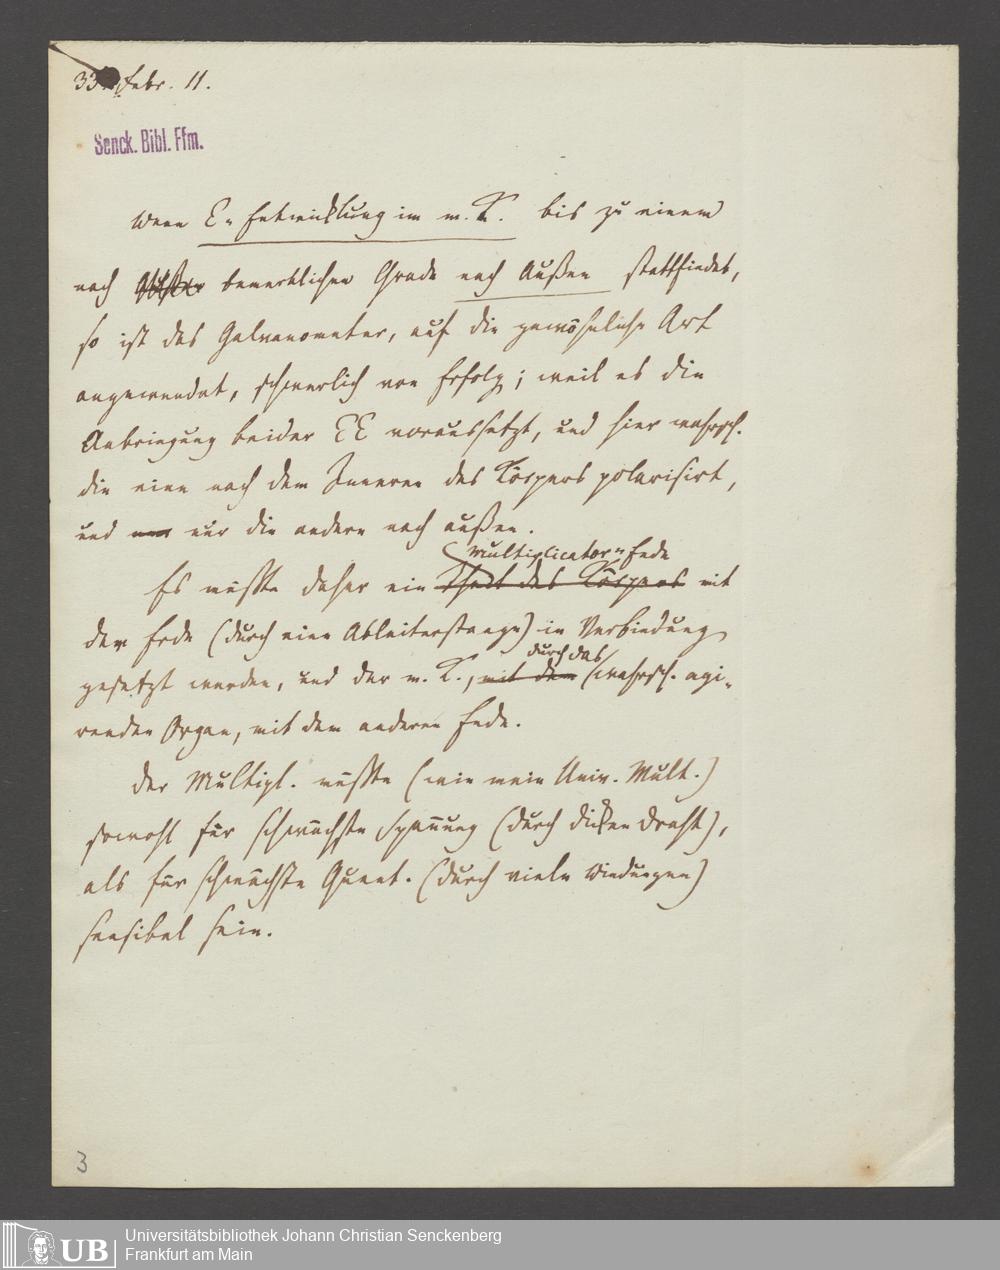 33. Febr. 11.
Senck. Bibl. Ffm.
Wenn E-Entwicklung im m. K. bis zu einem
noch bemerklichen Grade nach Außen stattfindet,
so ist das Galvanometer, auf die gewöhnliche Art
angewendet, schwerlich von Erfolg; weil es die
Anbringung beider EE voraussetzt, und hier wahrsch.
die eine nach dem Inneren des Körpers polarisirt,
und nur die andere nach außen.
Multiplicator-Ende
Es müßte daher ein Theil des Körpers mit
der Erde (durch eine Ableiterstange) in Verbindung
durch das
gesetzt werden, und der m. K., mit dem (wahrsch. agi-
renden Organ, mit dem anderen Ende.
Der Multipl. müßte (wie mein Univ. Mult.)
sowohl für schwächste Spannung (durch dicken Draht),
als für schwächste Quant. (durch viele Windungen)
sensibel sein.
3
UB
Universitätsbibliothek Johann Christian Senckenberg
Frankfurt am Main